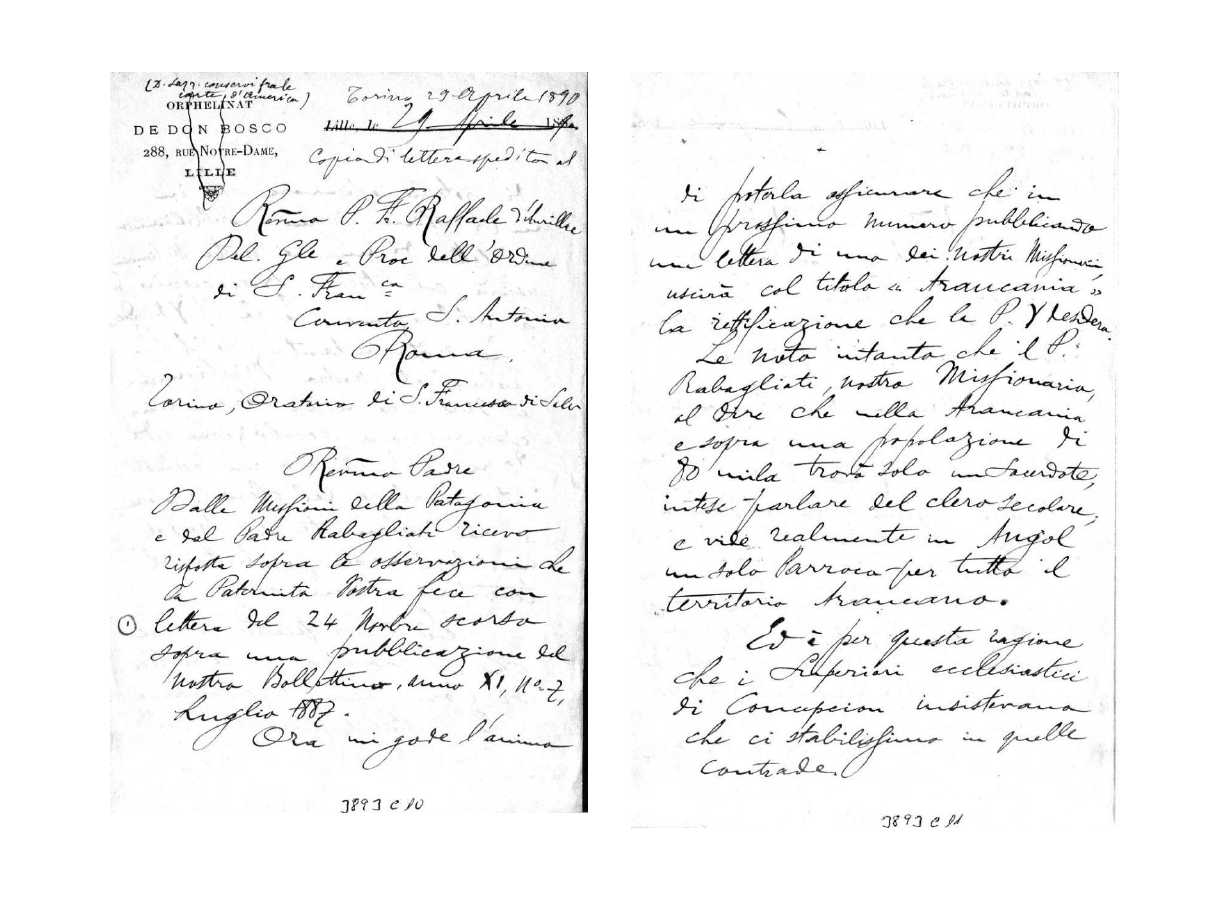 (D. Lazz. conservi fra le
carte d'America)
ORPHELINAT
DE DON BOSCO
288, RUE NOTRE-DAME,
LILLE
Torino 29 Aprile 1890
Lille, le 29 Aprile 18
Copia di lettera spedita al
Revmo P. Fr. Raffaele d'Aurillac
Del. Gle e Proc dell'Ordine
di S. Franca
Convento S. Antonio
Roma.
Torino, Oratorio di S. Francesco di Sales
Revmo Padre
Dalle Missioni della Patagonia
e dal Padre Rabagliati ricevo
risposta sopra le osservazioni che
la Paternità Vostra fece con
lettera del 24 Novbre scorso
sopra una pubblicazione del
nostro Bollettino, anno XI, No 7,
Luglio 1887.
Ora mi gode l'animo
3893 C 10
di poterla assicurare che in
un prossimo numero pubblicando
una lettera di uno dei nostri Missionarii,
uscirà col titolo « Araucania »
la rettificazione che la P. V desidera.
Le noto intanto che il P.
Rabagliati, nostro Missionario,
al dire che nella Araucania
e sopra una popolazione di
80 mila trovò solo un Sacerdote,
intese parlare del clero secolare,
e vide realmente in Angol
un solo Parroco per tutto il
territorio Araucano.
Ed è per questa ragione
che i Superiori ecclesiastici
di Concepcion insistevano
che ci stabilissimo in quelle
contrade.
3893 C 11